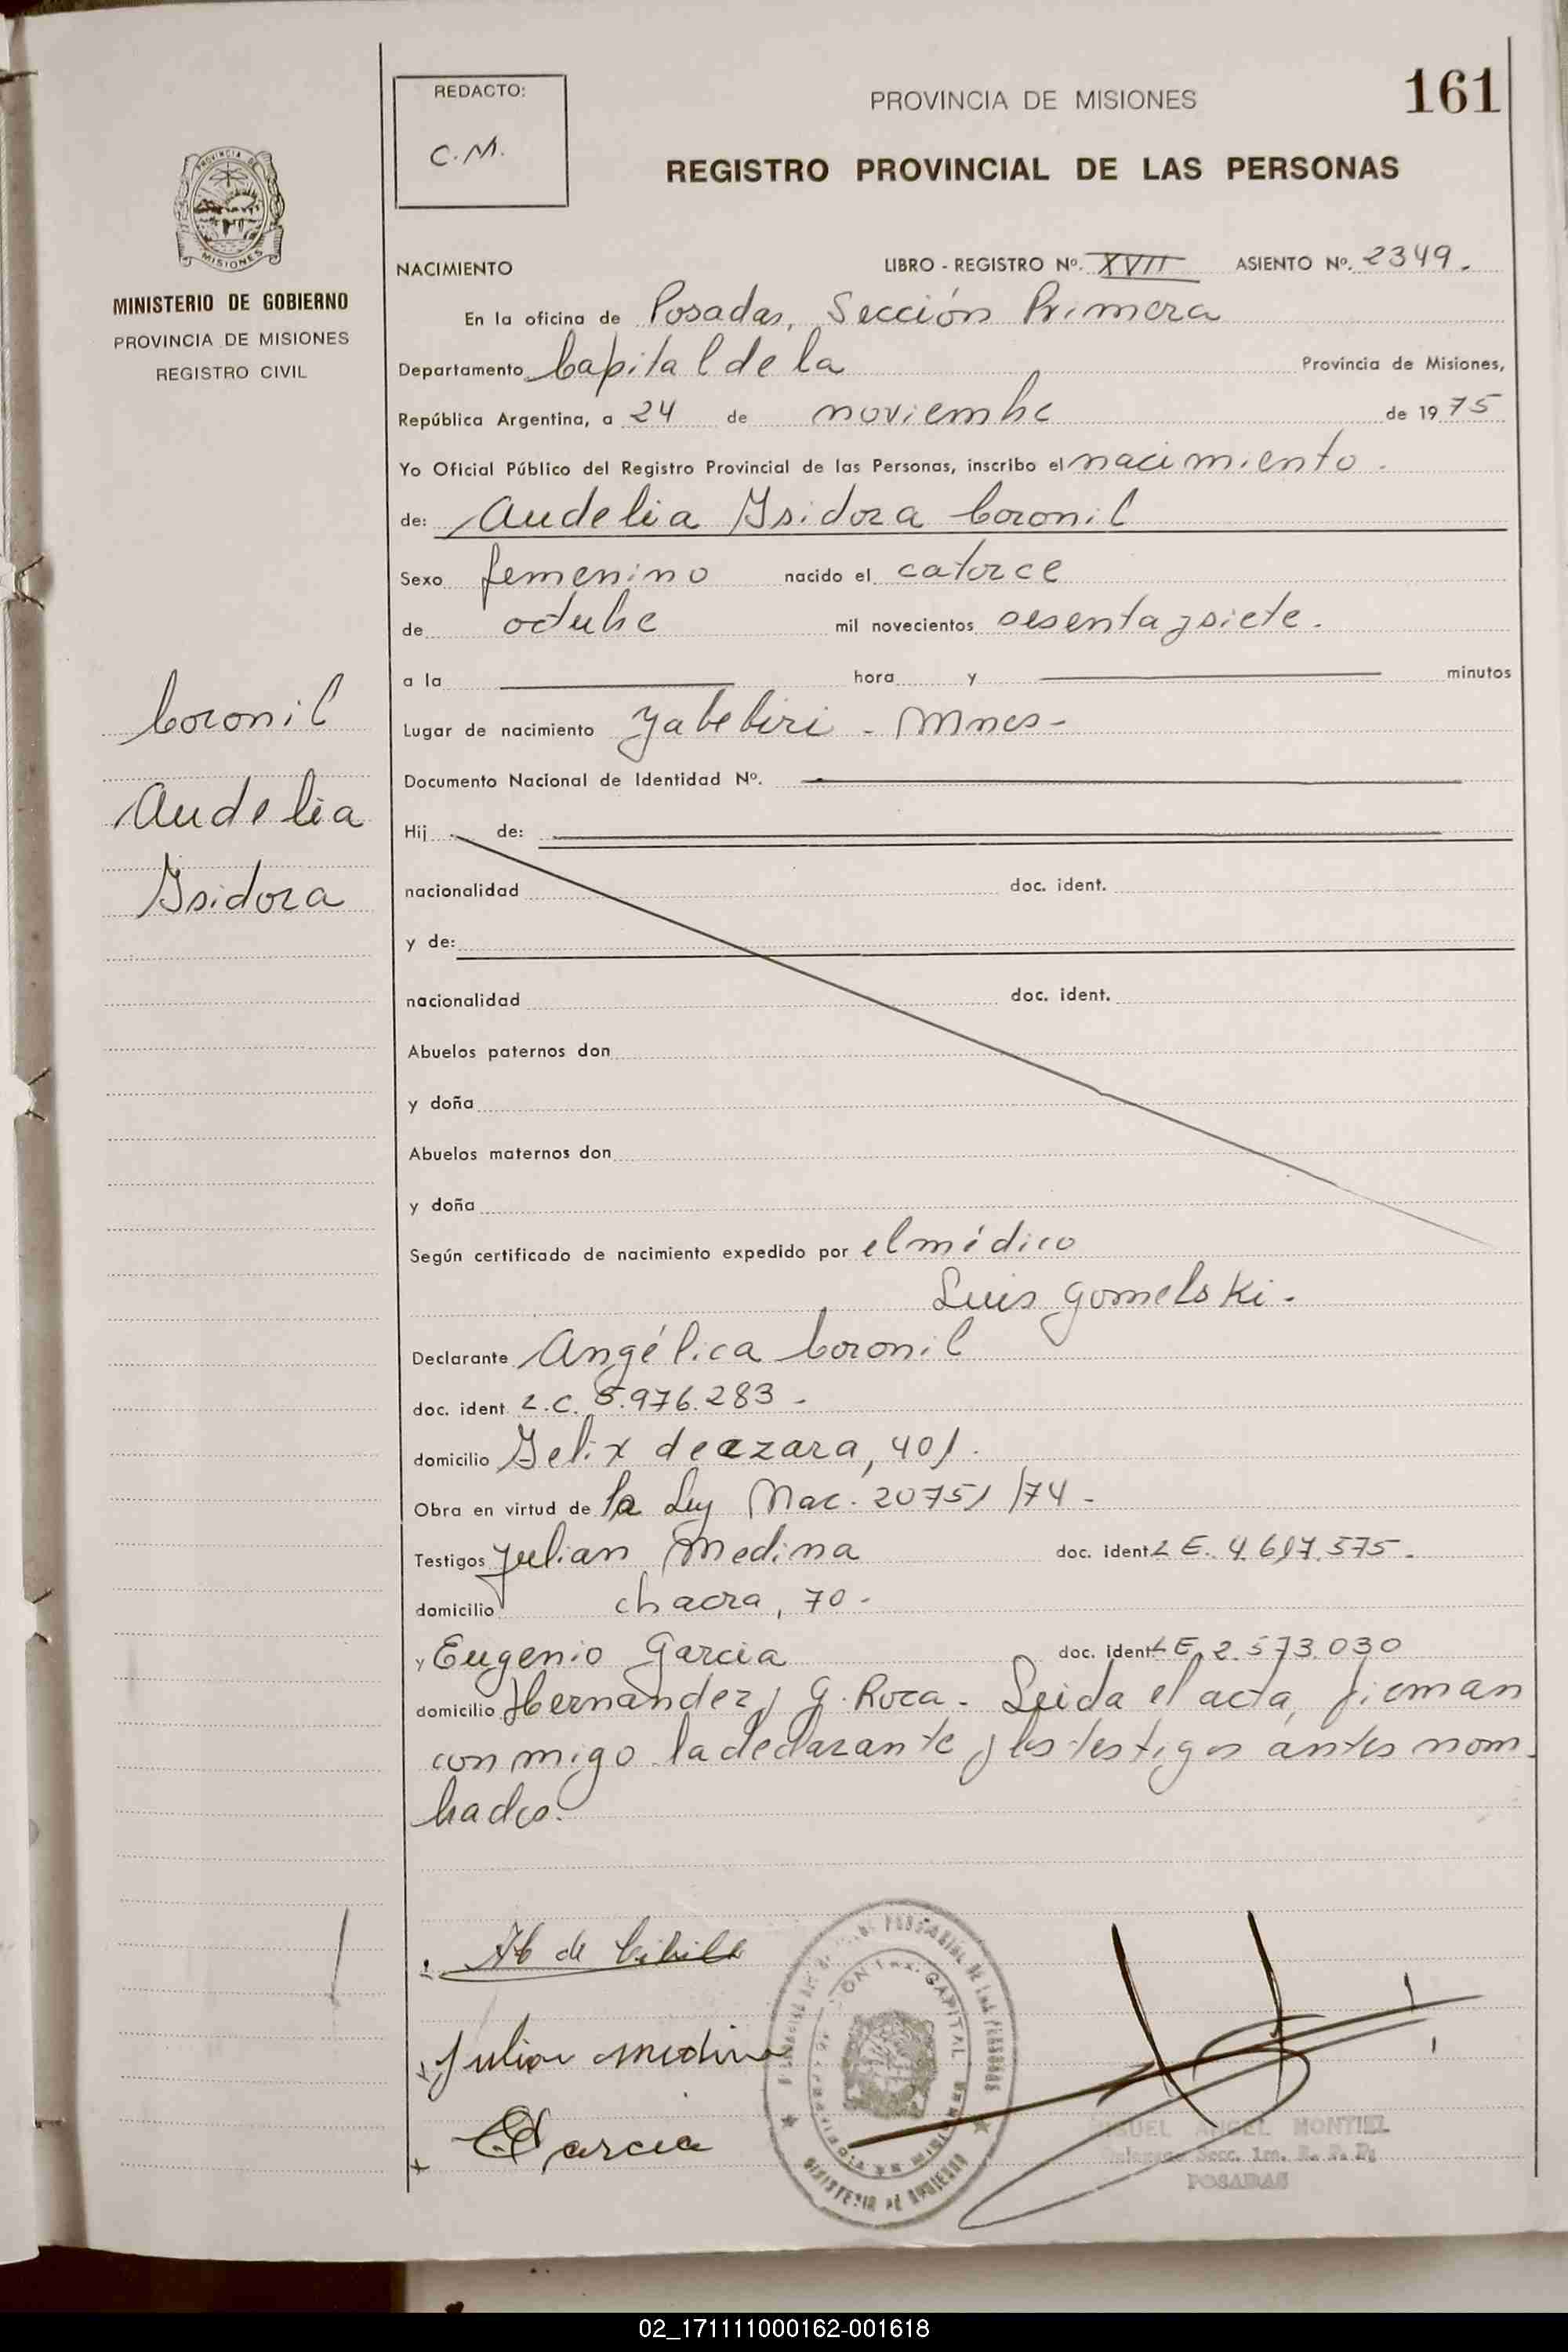 REDACTO:
C.M.
PROVINCIA DE MISIONES
161
REGISTRO PROVINCIAL DE LAS PERSONAS
PROVINCIA DE
MISIONES
MINISTERIO DE GOBIERNO
PROVINCIA DE MISIONES
REGISTRO CIVIL
NACIMIENTO
LIBRO - REGISTRO Nº. XVII ASIENTO Nº. 2349.
En la oficina de Posadas, Sección Primera
Departamento Capital de la Provincia de Misiones,
República Argentina, a 24 de noviembre de 1975
Yo Oficial Público del Registro Provincial de las Personas, inscribo el nacimiento.
de: Audelia Isidora Coronil
Sexo femenino nacido el catorce
de octubre mil novecientos sesenta y siete.
a la hora y minutos
Coronil
Audelia
Isidora
Lugar de nacimiento Yabebiri - Mnes-
Documento Nacional de Identidad Nº.
Hij de:
nacionalidad doc. ident.
y de:
nacionalidad doc. ident.
Abuelos paternos don
y doña
Abuelos maternos don
y doña
Según certificado de nacimiento expedido por el médico
Luis Gomelski.
Declarante Angélica Coronil
doc. ident L.C. 5.976.283 -
domicilio Felix de azara, 401.
Obra en virtud de la Ley Nac. 20751/74 -
Testigos Julian Medina doc. ident L E. 4.617.575.
domicilio chacra, 70.
y Eugenio Garcia doc. ident L E. 2.573.030
domicilio Hernandez y G. Roca - Leida el acta, firman
conmigo la declarante y los testigos antes nom_
brados.
Julian Medina
E Garcia
CAPITAL
MINISTERIO DE GOBIERNO
MIGUEL ANGEL MONTIEL
Delegado Secc. 1ra. R. P. P.
POSADAS
02_171111000162-001618